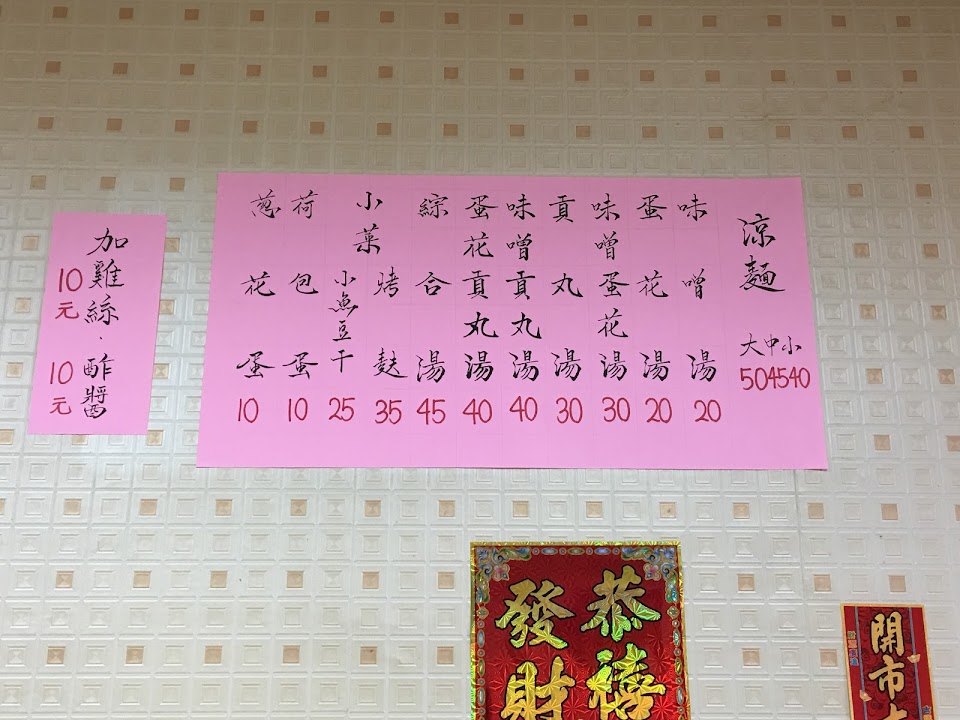 涼麵
大中小
504540
味噌湯
20
蛋花湯
20
味噌蛋花湯
30
貢丸湯
30
味噌貢丸湯
40
蛋花貢丸湯
40
綜合湯
45
小菜
烤麩
35
小魚豆干
25
荷包蛋
10
蔥花蛋
10
加雞絲.酢醬
10元
10元
恭禧
發財
開市